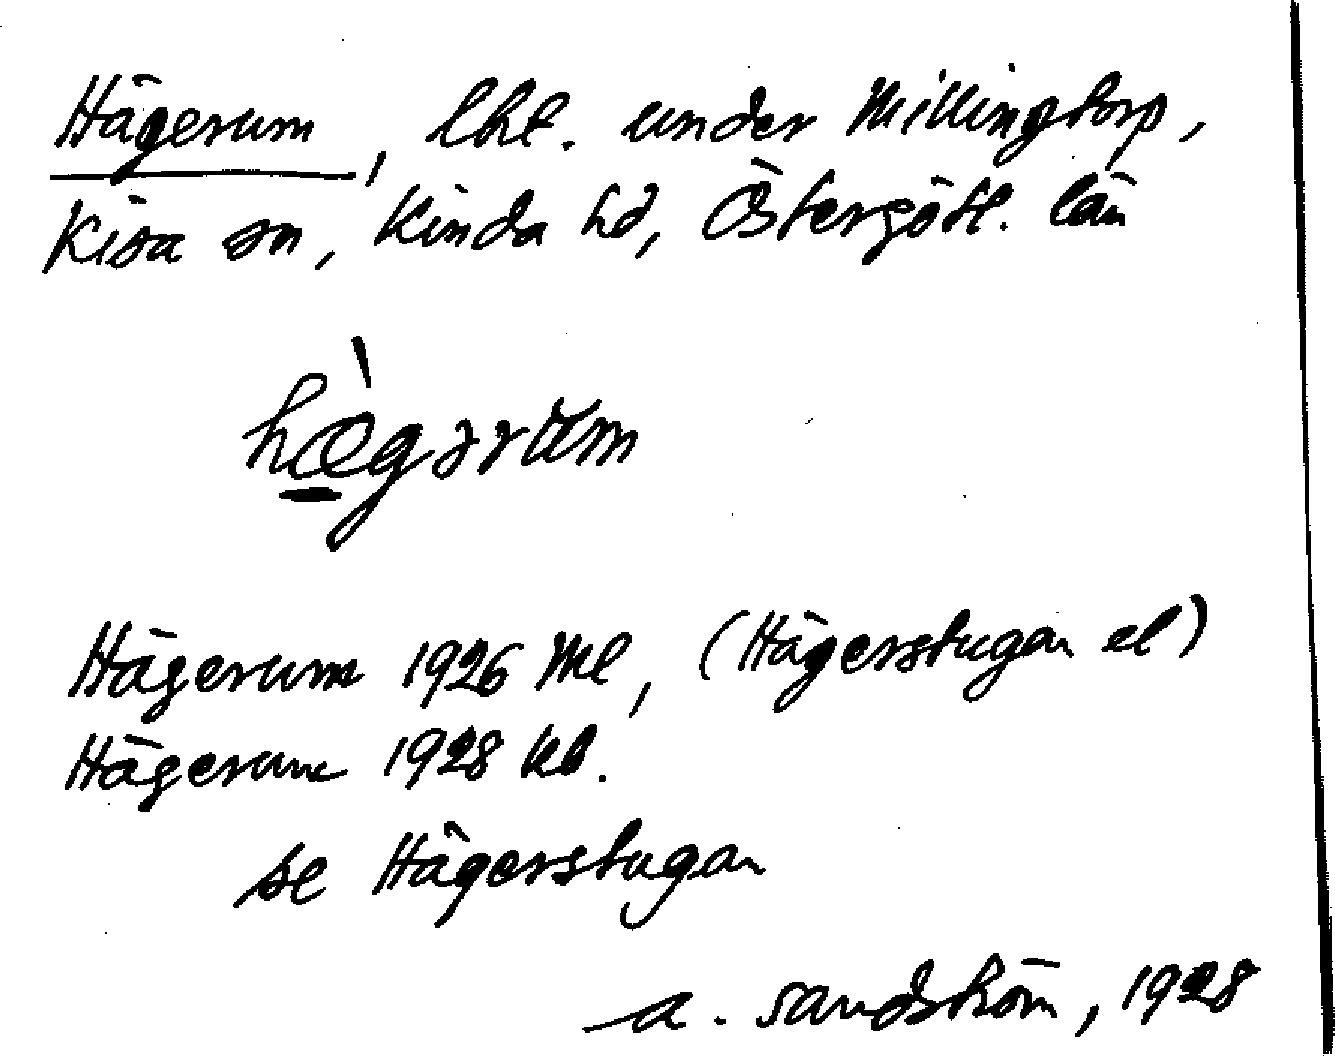 Hägerum, lht. under Millingtorp,
Kisa sn, Kinda hd, Östergötl. län
hæ̀gərŭm
Hägerum 1926 Ml, (Hägerstugan el)
Hägerum 1928 kb.
se Hägerstugan
A. Sandström, 1928